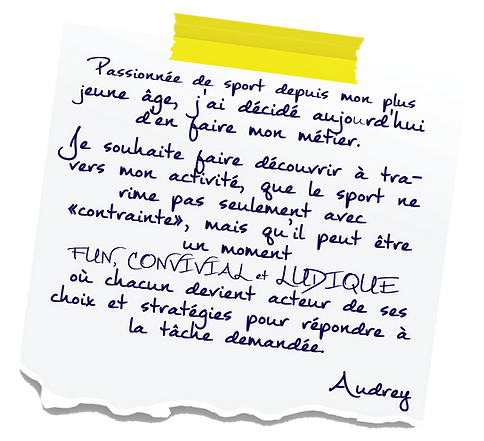 Passionnée de sport depuis mon plus
jeune âge, j'ai décidé aujourd'hui
d'en faire mon métier.
Je souhaite faire découvrir à tra-
vers mon activité, que le sport ne
rime pas seulement avec
«contrainte», mais qu'il peut être
un moment
FUN, CONVIVIAL et LUDIQUE
où chacun devient acteur de ses
choix et stratégies pour répondre à
la tâche demandée.
Audrey